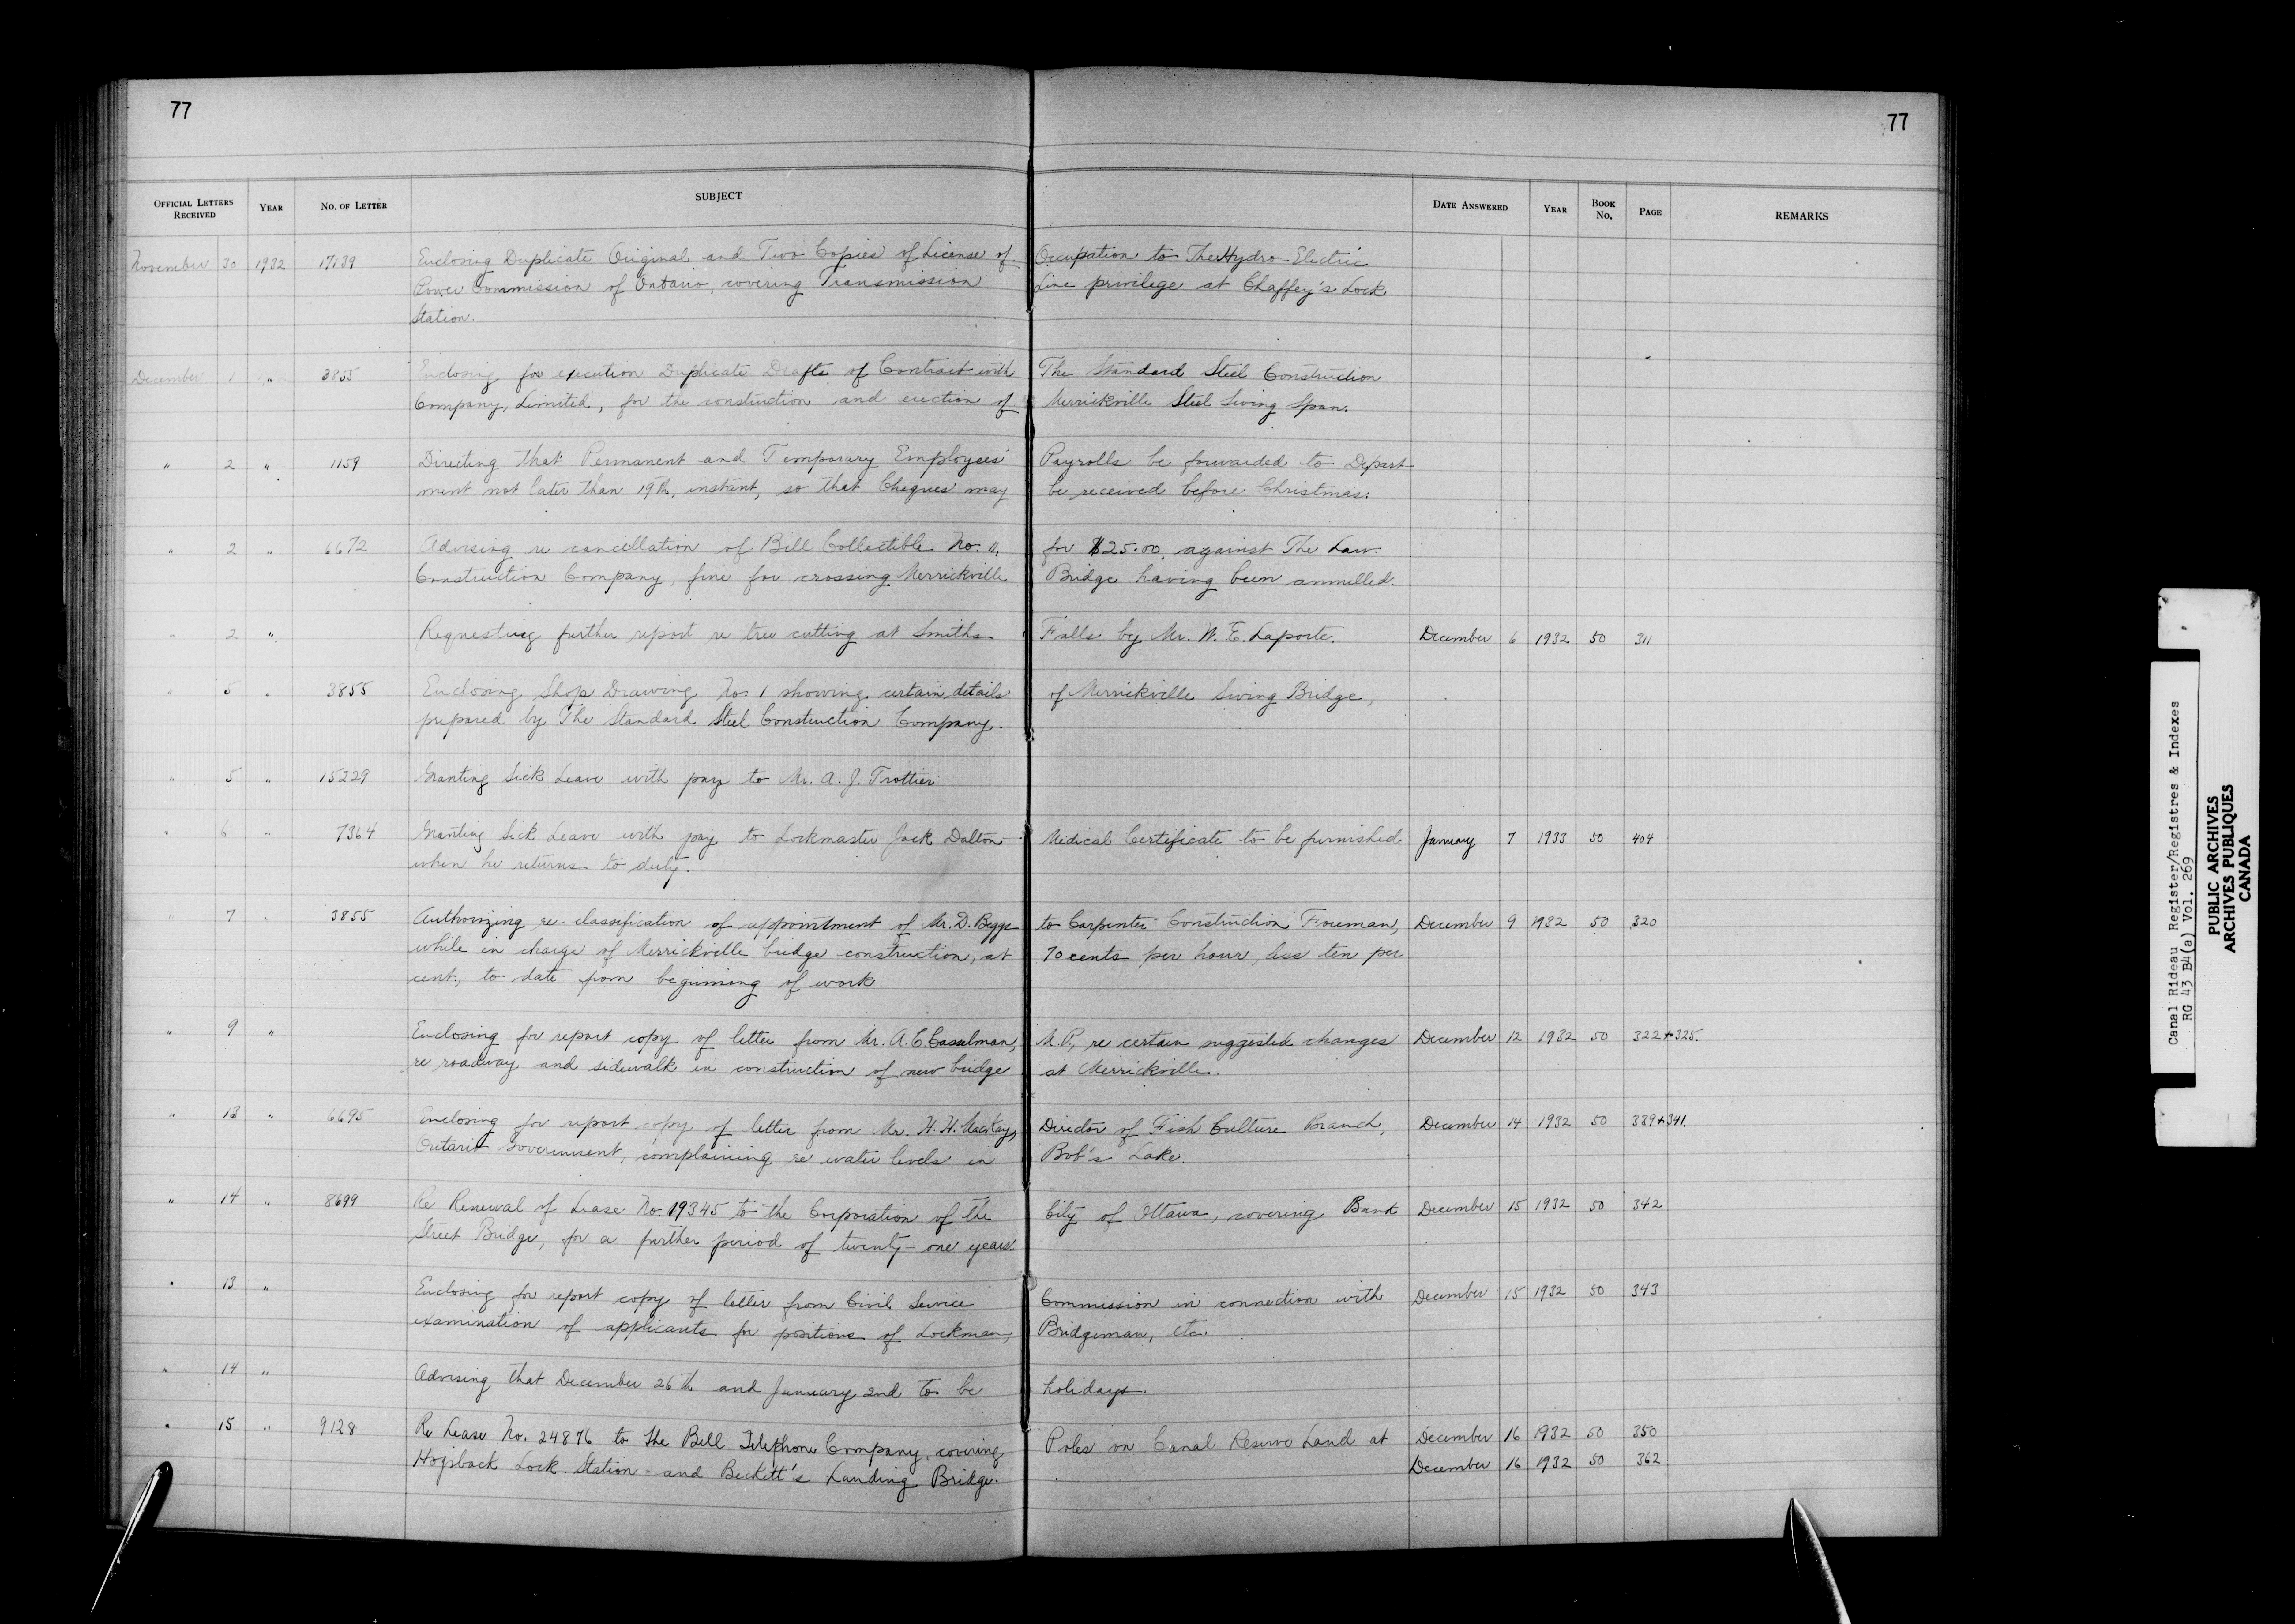 77
77
OFFICIAL LETTERS RECEIVED YEAR NO. OF LETTER SUBJECT DATE ANSWERED YEAR BOOK NO. PAGE REMARKS
November 30 1932 17139 Enclosing Duplicate Original and Two Copies of License of Occupation to The Hydro-Electric
Power Commission of Ontario, covering Transmission Line privilege at Chaffey's Lock
Station.
December 1 " 3855 Enclosing for execution Duplicate Drafts of Contract with The Standard Steel Construction
Company, Limited, for the construction and erection of Merrickville Steel Swing Span.
" 2 " 1159 Directing that Permanent and Temporary Employees' Payrolls be forwarded to Depart-
ment not later than 19th, instant, so that Cheques may be received before Christmas.
" 2 " 6672 Advising re cancellation of Bill Collectible No. 11, for $25.00, against The Law
Construction Company, fine for crossing Merrickville Bridge having been annulled.
" 2 " Requesting further report re tree cutting at Smiths Falls by Mr. W. E. Laporte. December 6 1932 50 311
" 5 " 3855 Enclosing Shop Drawing No. 1 showing certain details of Merrickville Swing Bridge,
prepared by The Standard Steel Construction Company.
" 5 " 15229 Granting Sick Leave with pay to Mr. A. J. Trottier.
" 6 " 7364 Granting Sick Leave with pay to Lockmaster Jack Dalton - Medical Certificate to be furnished January 7 1933 50 404
when he returns to duty.
" 7 " 3855 Authorizing re-classification of appointment of Mr. D. Beggs to Carpenter Construction Foreman, December 9 1932 50 320
while in charge of Merrickville bridge construction, at 70 cents per hour, less ten per
cent, to date from beginning of work.
" 9 " Enclosing for report copy of letter from Mr. A. C. Casselman, M.P., re certain suggested changes December 12 1932 50 322+325.
re roadway and sidewalk in construction of new bridge at Merrickville.
" 13 " 6695 Enclosing for report copy of letter from Mr. H. H. MacKay, Director of Fish Culture Branch, December 14 1932 50 339+341.
Ontario Government, complaining re water levels in Bob's Lake.
" 14 " 8699 Re Renewal of Lease No. 19345 to the Corporation of the City of Ottawa, covering Bank December 15 1932 50 342
Street Bridge, for a further period of twenty-one years.
" 13 " Enclosing for report copy of letter from Civil Service Commission in connection with December 15 1932 50 343
examination of applicants for positions of Lockman, Bridgeman, etc.
" 14 " Advising that December 26th and January 2nd to be holidays.
" 15 " 9128 Re Lease No. 24876 to the Bell Telephone Company, covering Poles on Canal Reserve Land at December 16 1932 50 350
Hogsback Lock Station and Beckett's Landing Bridge. December 16 1932 50 362
Canal Rideau Register/Registres & Indexes
RG 43 B4(a) Vol. 269
PUBLIC ARCHIVES
ARCHIVES PUBLIQUES
CANADA